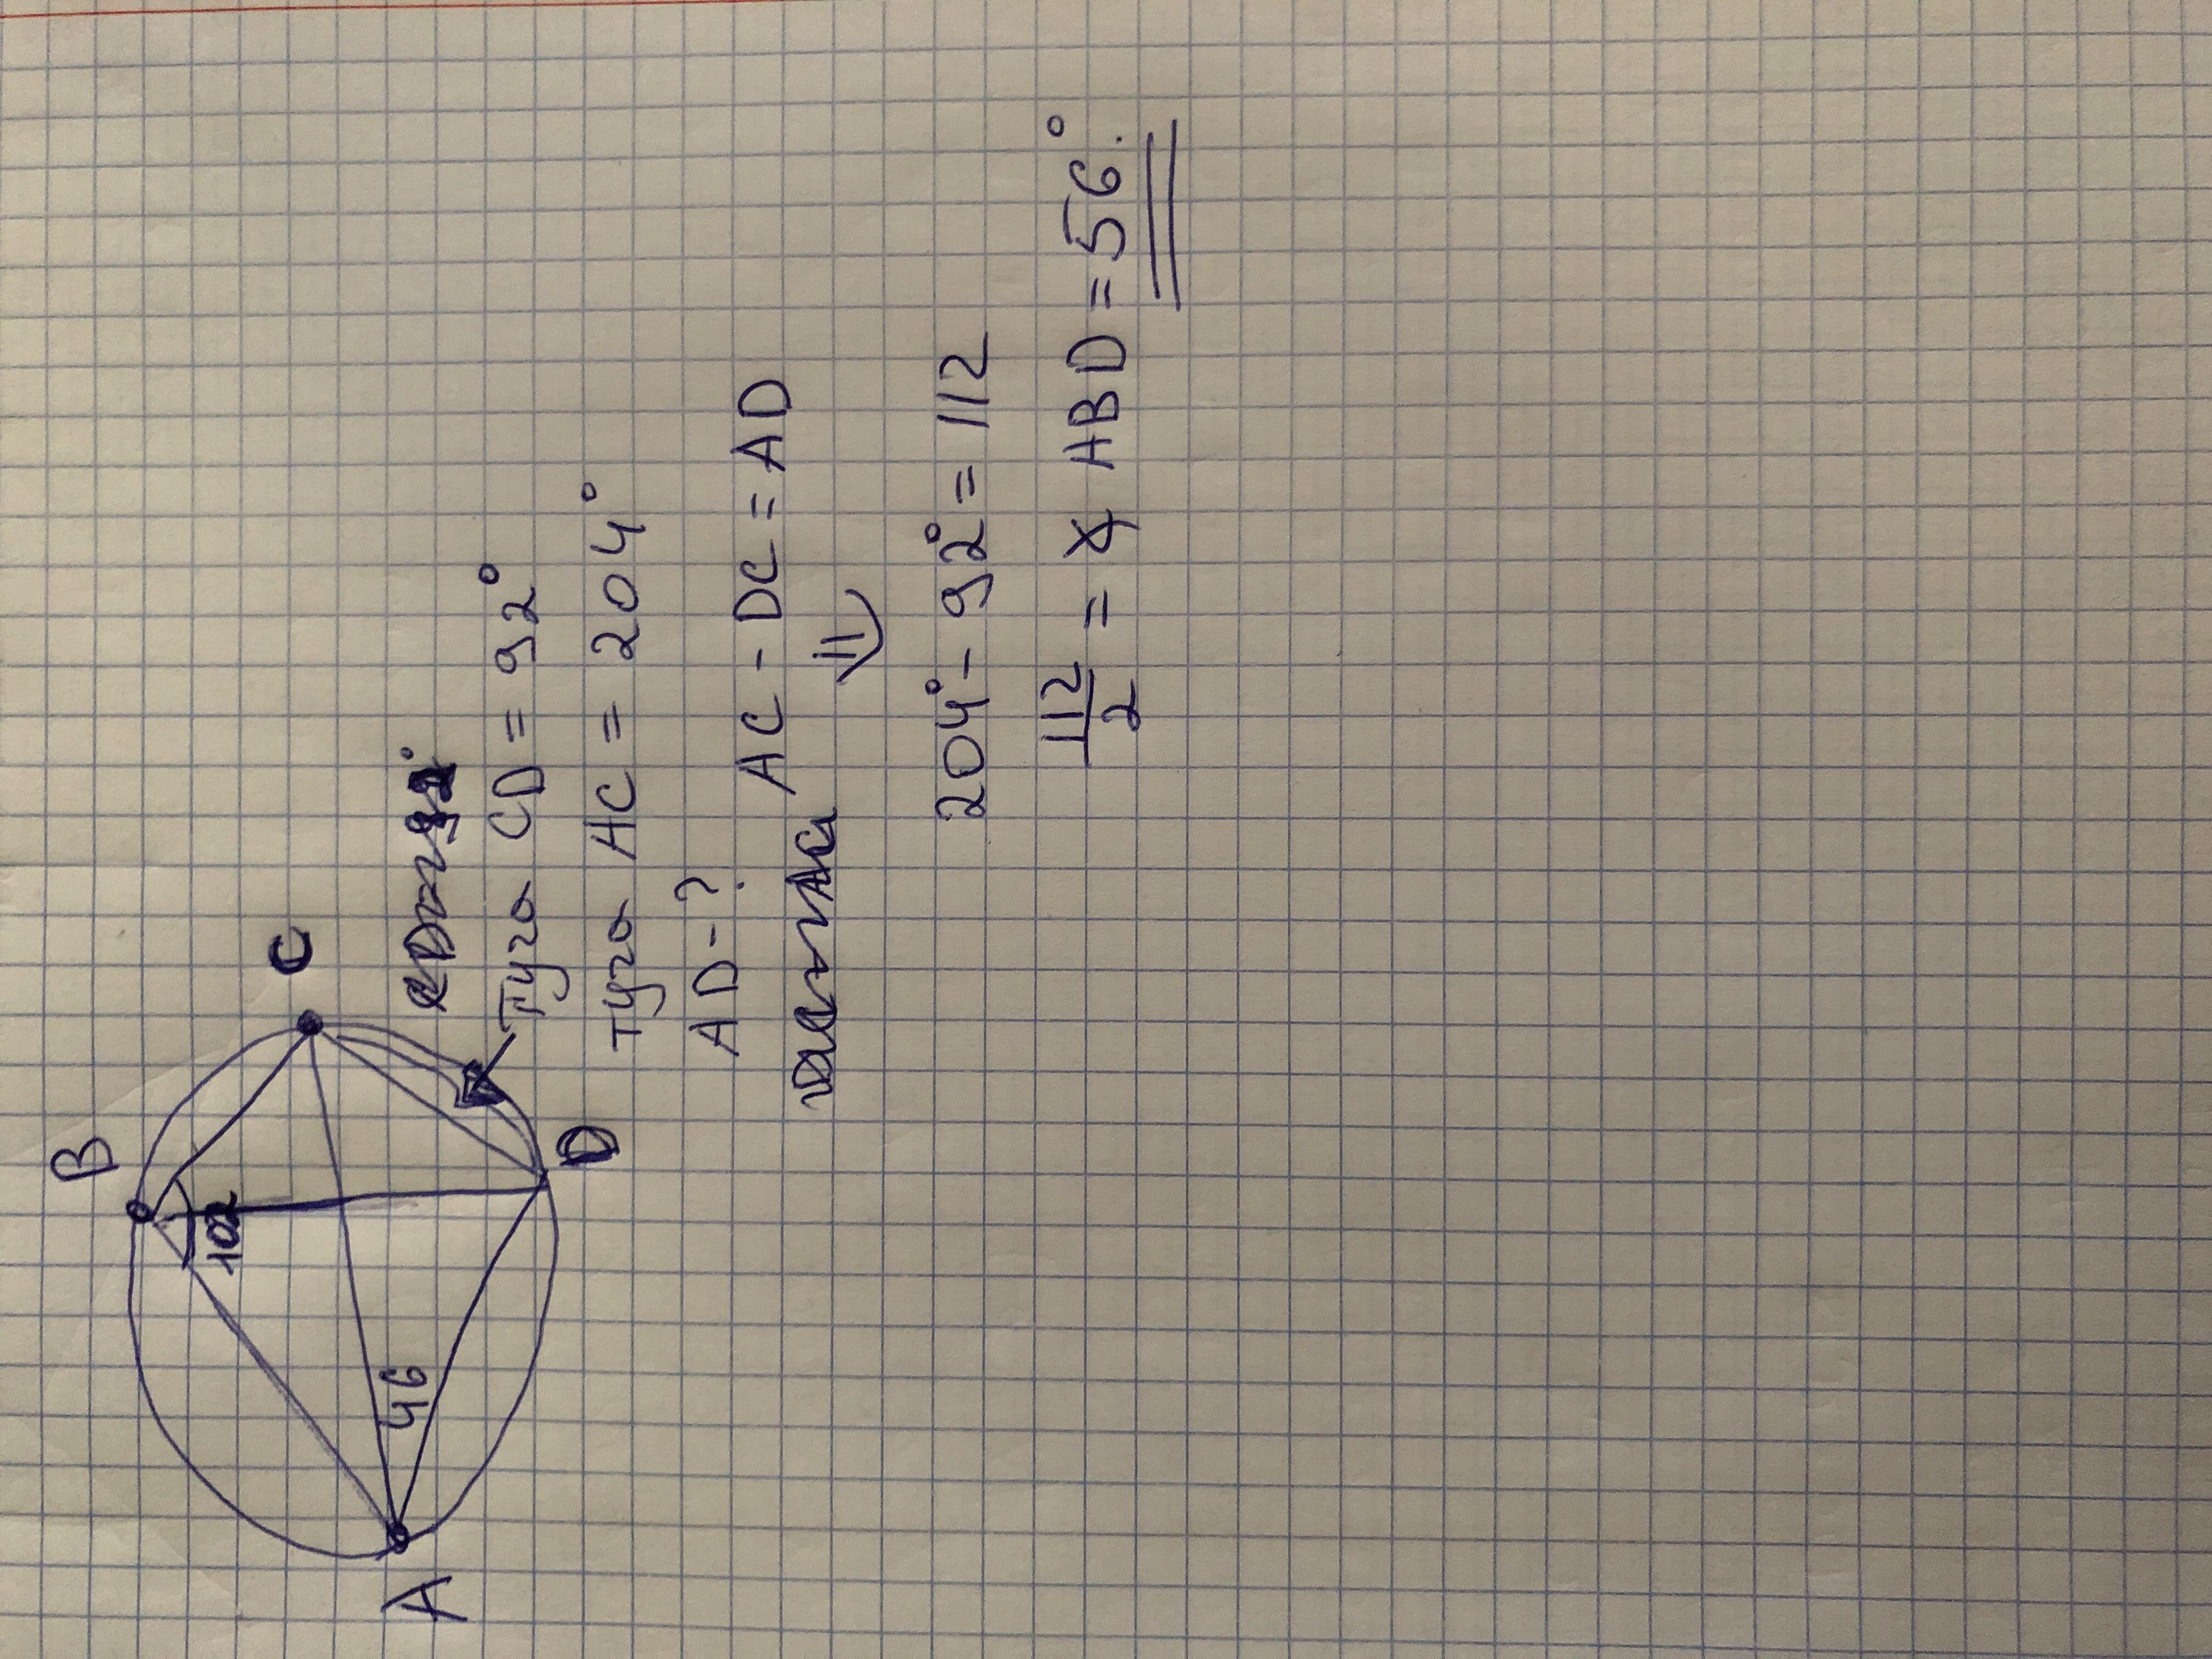 B
C
102
46
A
D
Дуга CD = 92°
дуга AC = 204°
AD - ?
AC - DC = AD
⇓
204° - 92° = 112
112/2 = ∠ ABD = 56°.